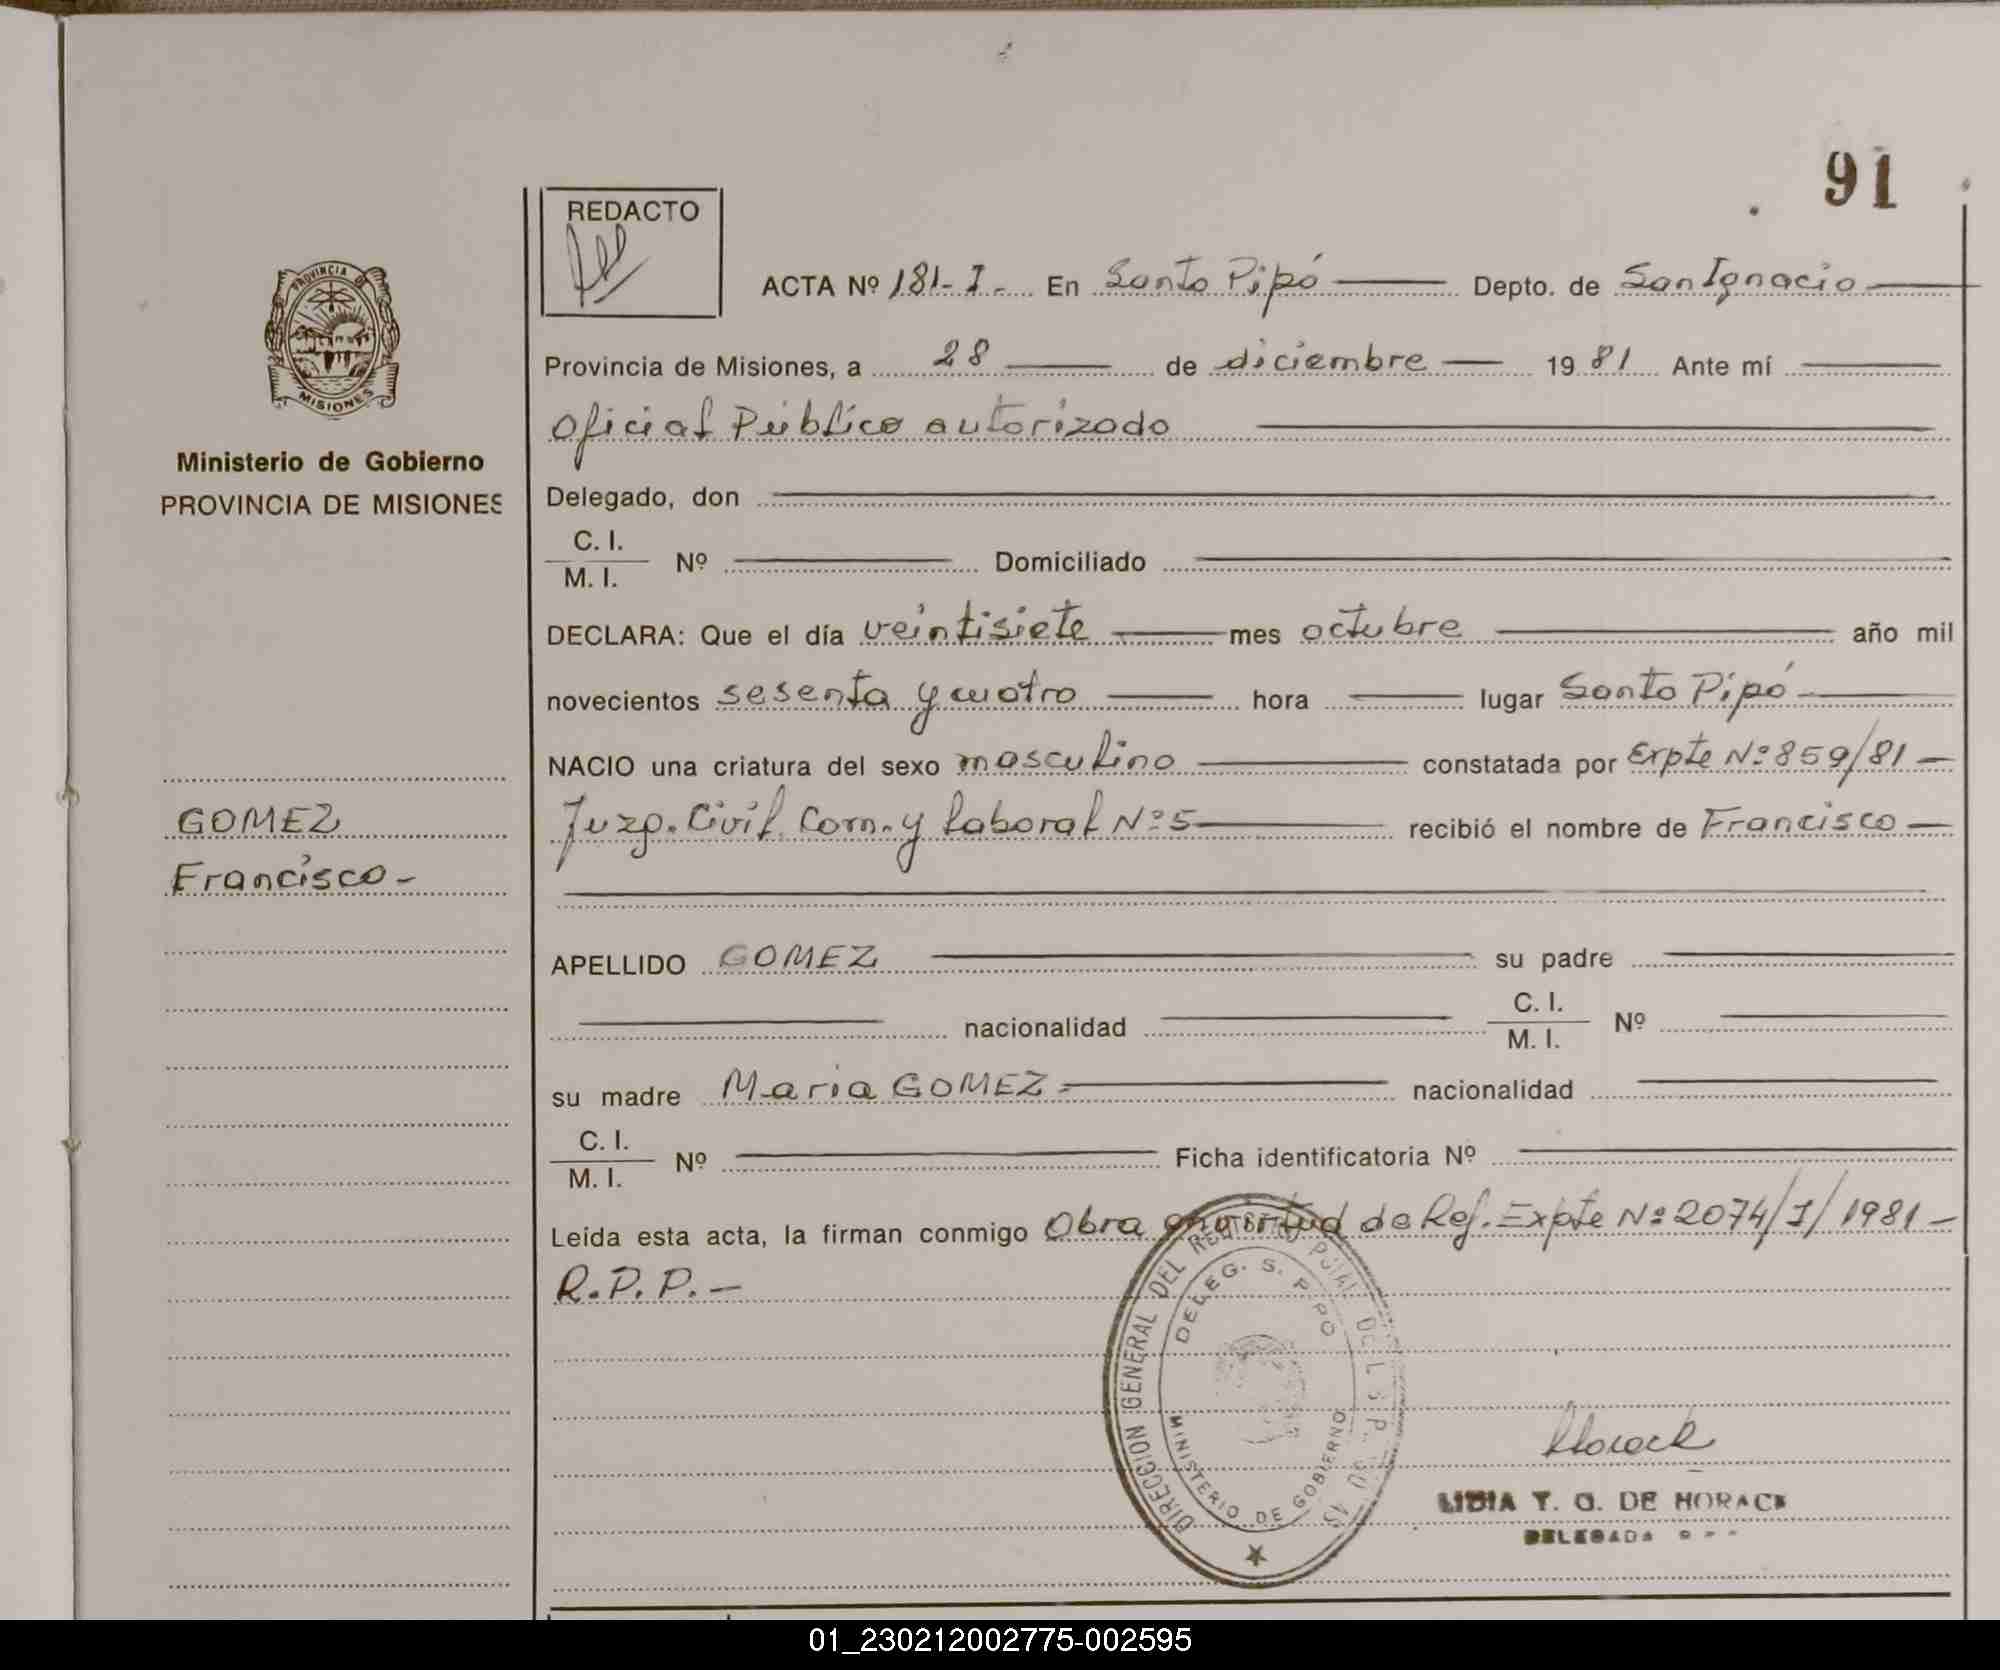 91
REDACTO
ACTA Nº 181-I.- En Santo Pipó Depto. de San Ignacio
PROVINCIA DE
MISIONES
Provincia de Misiones, a 28 de diciembre 1981 Ante mí
Oficial Público autorizado
Ministerio de Gobierno
PROVINCIA DE MISIONES
Delegado, don
C. I.
M. I. Nº Domiciliado
DECLARA: Que el día veintisiete mes octubre año mil
novecientos sesenta y cuatro hora lugar Santo Pipó
NACIO una criatura del sexo masculino constatada por Expte Nº 859/81 -
GOMEZ
Juzg. Civil. Com. y laboral Nº 5 recibió el nombre de Francisco
Francisco-
APELLIDO GOMEZ su padre
nacionalidad C. I.
M. I. Nº
su madre Maria GOMEZ- nacionalidad
C. I.
M. I. Nº Ficha identificatoria Nº
Leída esta acta, la firman conmigo Obra en virtud de Ref. Expte Nº 2074/I/1981 -
R.P.P.-
DIRECCION GENERAL DEL
DELEG. S. PIPO
MINISTERIO DE GOBIERNO
Horack
LIDIA Y. G. DE HORACK
DELEGADA
01_230212002775-002595